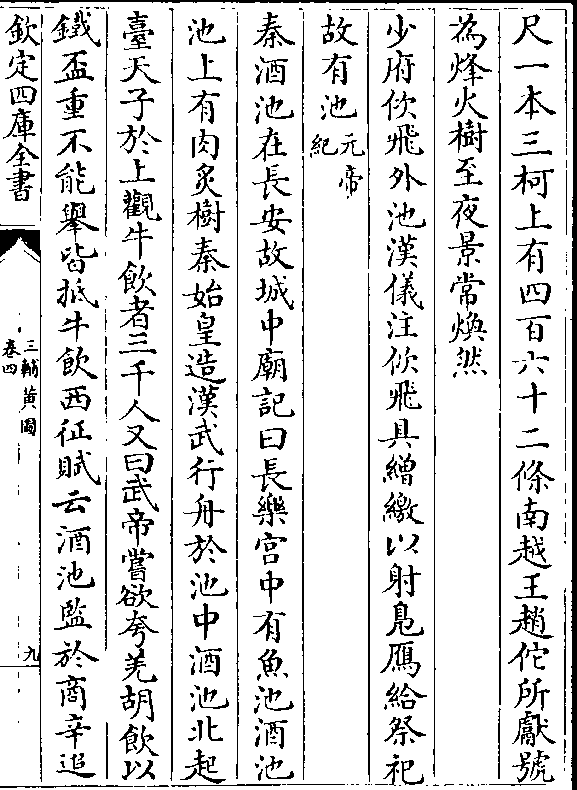 尺一本三柯上有四百六十二條南越王趙佗所獻號
為烽火樹至夜景常煥然
少府佽飛外池漢儀注佽飛具繒繳以射鳧鴈給祭祀
故有池元帝紀
秦酒池在長安故城中廟記曰長樂宫中有魚池酒池
池上有肉炙樹秦始皇造漢武行舟於池中酒池北起
臺天子於上觀牛飲者三千人又曰武帝嘗欲夸羌胡飲以
鐵盃重不能舉皆抵牛飲西征賦云酒池監於商辛追
欽定四庫全書
三輔黄圖
卷四
九